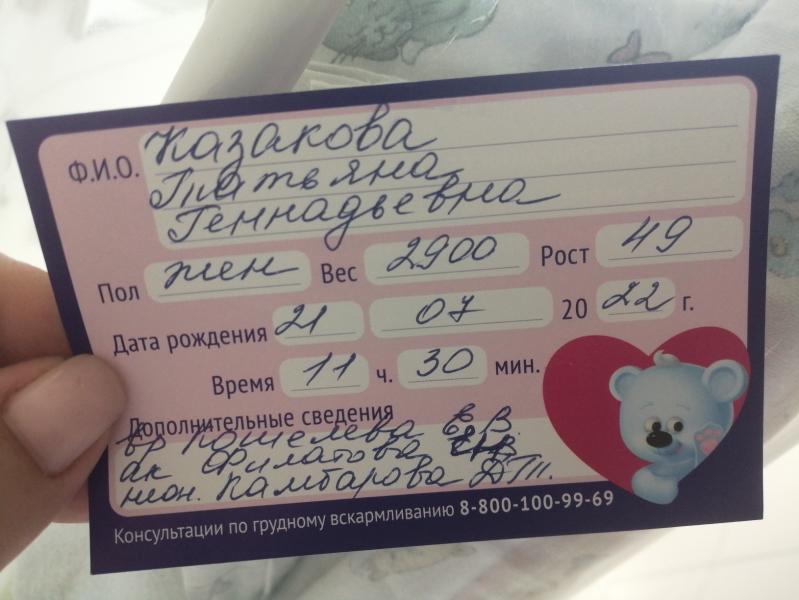 Ф.И.О. Казакова
Татьяна
Геннадьевна
Пол жен Вес 2900 Рост 49
Дата рождения 21 07 2022 г.
Время 11 ч. 30 мин.
Дополнительные сведения
вр Кошелева Е.В.
ак Филатова
неон. Камбарова Д.Т.
Консультации по грудному вскармливанию 8-800-100-99-69